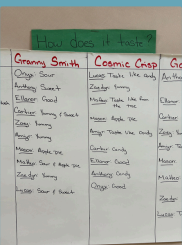 How does it taste?
Granny Smith
Onyx: Sour
Anthony: Sweet
Ellanor: Good
Carter: Yummy & Sweet
Zoey: Yummy
Amya: Yummy
Mason: Apple Pie
Matteo: Sour & Apple Pie
Zaedyn: Yummy
Lucas: Sour & Sweet
Cosmic Crisp
Lucas: Taste like Candy
Zaedyn: Yummy
Matteo: Taste like from the tree
Mason: Apple Pie
Amya: Taste like Candy
Carter: Candy
Ellanor: Good
Anthony: Candy
Onyx: Good
G
Anthon
Ellanor:
Carter:
Zoey:
Amya: Ta
Mason:
Matteo:
Zaedyn
Lucas: To